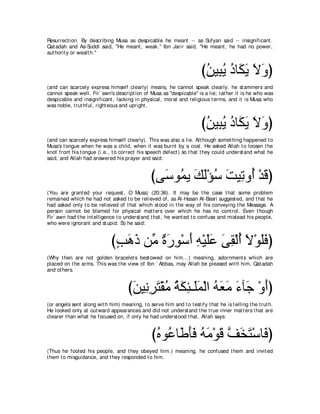 Resurrection. By describing Musa as despicable he meant -- as Sufyan said -- insignificant.
Qatadah and As-Suddi said, "He meant, weak.'' Ibn Jarir said, "He meant, he had no power,
authority or wealth.''
(وَلاَ يَكَادُ يُبِينُ)
(and can scarcely express himself clearly) means, he cannot speak clearly, he stammers and
cannot speak well. Fir`awn's description of Musa as "despicable'' is a lie; rather it is he who was
despicable and insignificant, lacking in physical, moral and religious terms, and it is Musa who
was noble, truthful, righteous and upright.
(وَلاَ يَكَادُ يُبِينُ)
(and can scarcely express himself clearly). This was also a lie. Although something happened to
Musa's tongue when he was a child, when it was burnt by a coal. He asked Allah to loosen the
knot from his tongue (i.e., to correct his speech defect) so that they could understand what he
said, and Allah had answered his prayer and said:
(قَدْ أُوتِيتَ سُؤْلَكَ يمُوسَى)
(You are granted your request, O Musa) (20:36). It may be the case that some problem
remained which he had not asked to be relieved of, as Al-Hasan Al-Basri suggested, and that he
had asked only to be relieved of that which stood in the way of his conveying the Message. A
person cannot be blamed for physical matters over which he has no control. Even though
Fir`awn had the intelligence to understand that, he wanted to confuse and mislead his people,
who were ignorant and stupid. So he said:
(فَلَوْلاَ أُلْقِىَ عَلَيْهِ أَسْوِرَةٌ مِّن ذَهَبٍ)
(Why then are not golden bracelets bestowed on him...) meaning, adornments which are
placed on the arms. This was the view of Ibn `Abbas, may Allah be pleased with him, Qatadah
and others.
(أَوْ جَآءَ مَعَهُ الْمَلَـئِكَةُ مُقْتَرِنِينَ)
(or angels sent along with him) meaning, to serve him and to testify that he is telling the truth.
He looked only at outward appearances and did not understand the true inner matters that are
clearer than what he focused on, if only he had understood that. Allah says:
(فَاسْتَخَفَّ قَوْمَهُ فَأَطَاعُوهُ)
(Thus he fooled his people, and they obeyed him.) meaning, he confused them and invited
them to misguidance, and they responded to him.